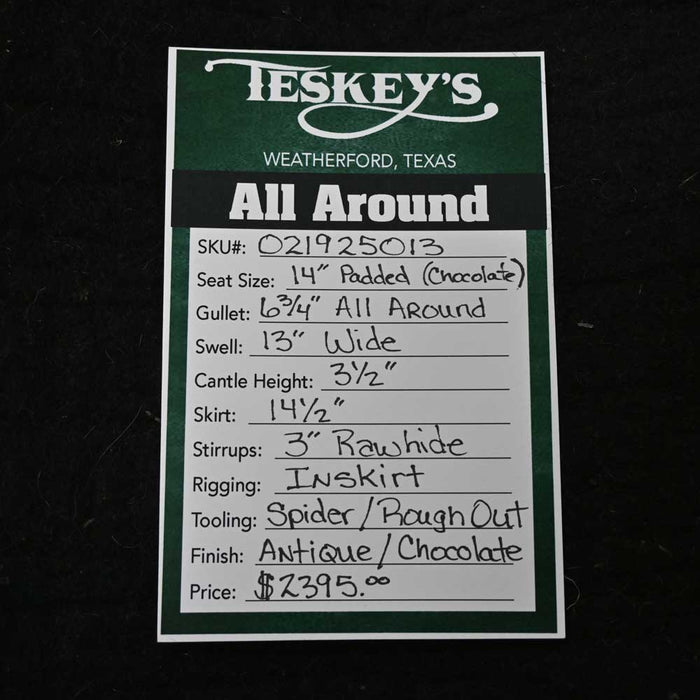 TESKEY'S
WEATHERFORD, TEXAS
All Around
SKU#: 021925013
Seat Size: 14" Padded (Chocolate)
Gullet: 6 3/4" All Around
Swell: 13" Wide
Cantle Height: 3 1/2"
Skirt: 14 1/2"
Stirrups: 3" Rawhide
Rigging: Inskirt
Tooling: Spider/Rough Out
Finish: Antique/Chocolate
Price: $2395.00